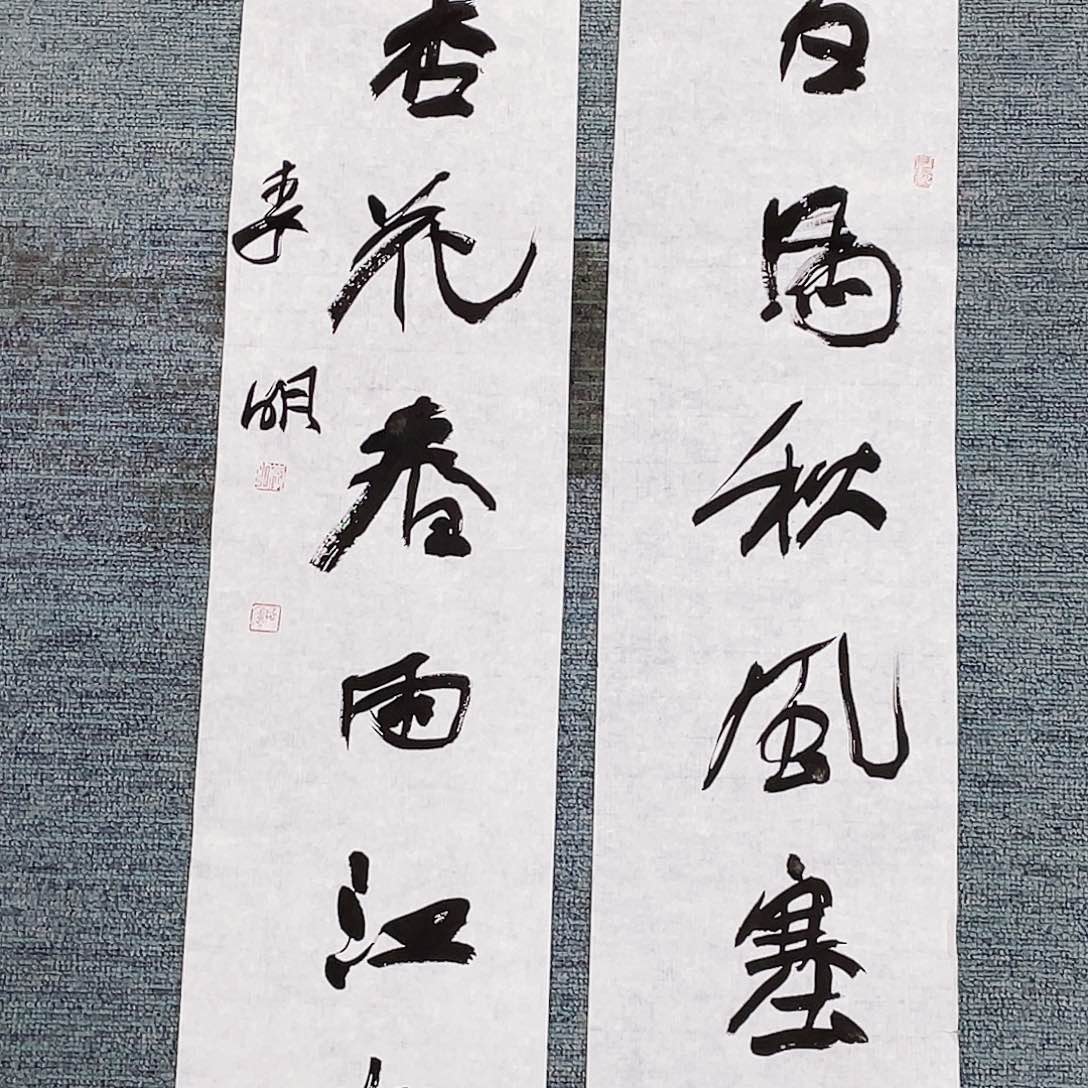 白馬秋风塞
杏花春雨江
李明